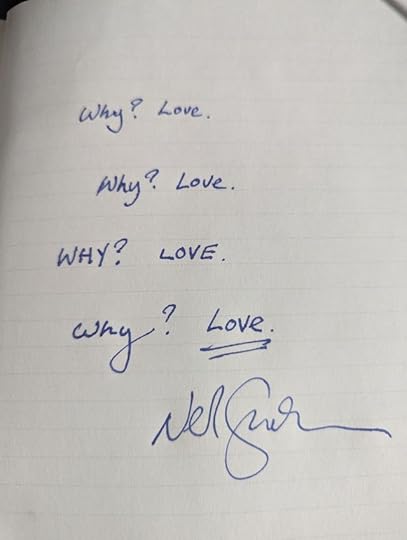 Why? Love.
Why? Love.
WHY? LOVE.
Why? Love.